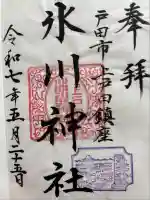 奉拝
戸田市
上戸田鎮座
氷川神社
令和七年五月二十五日